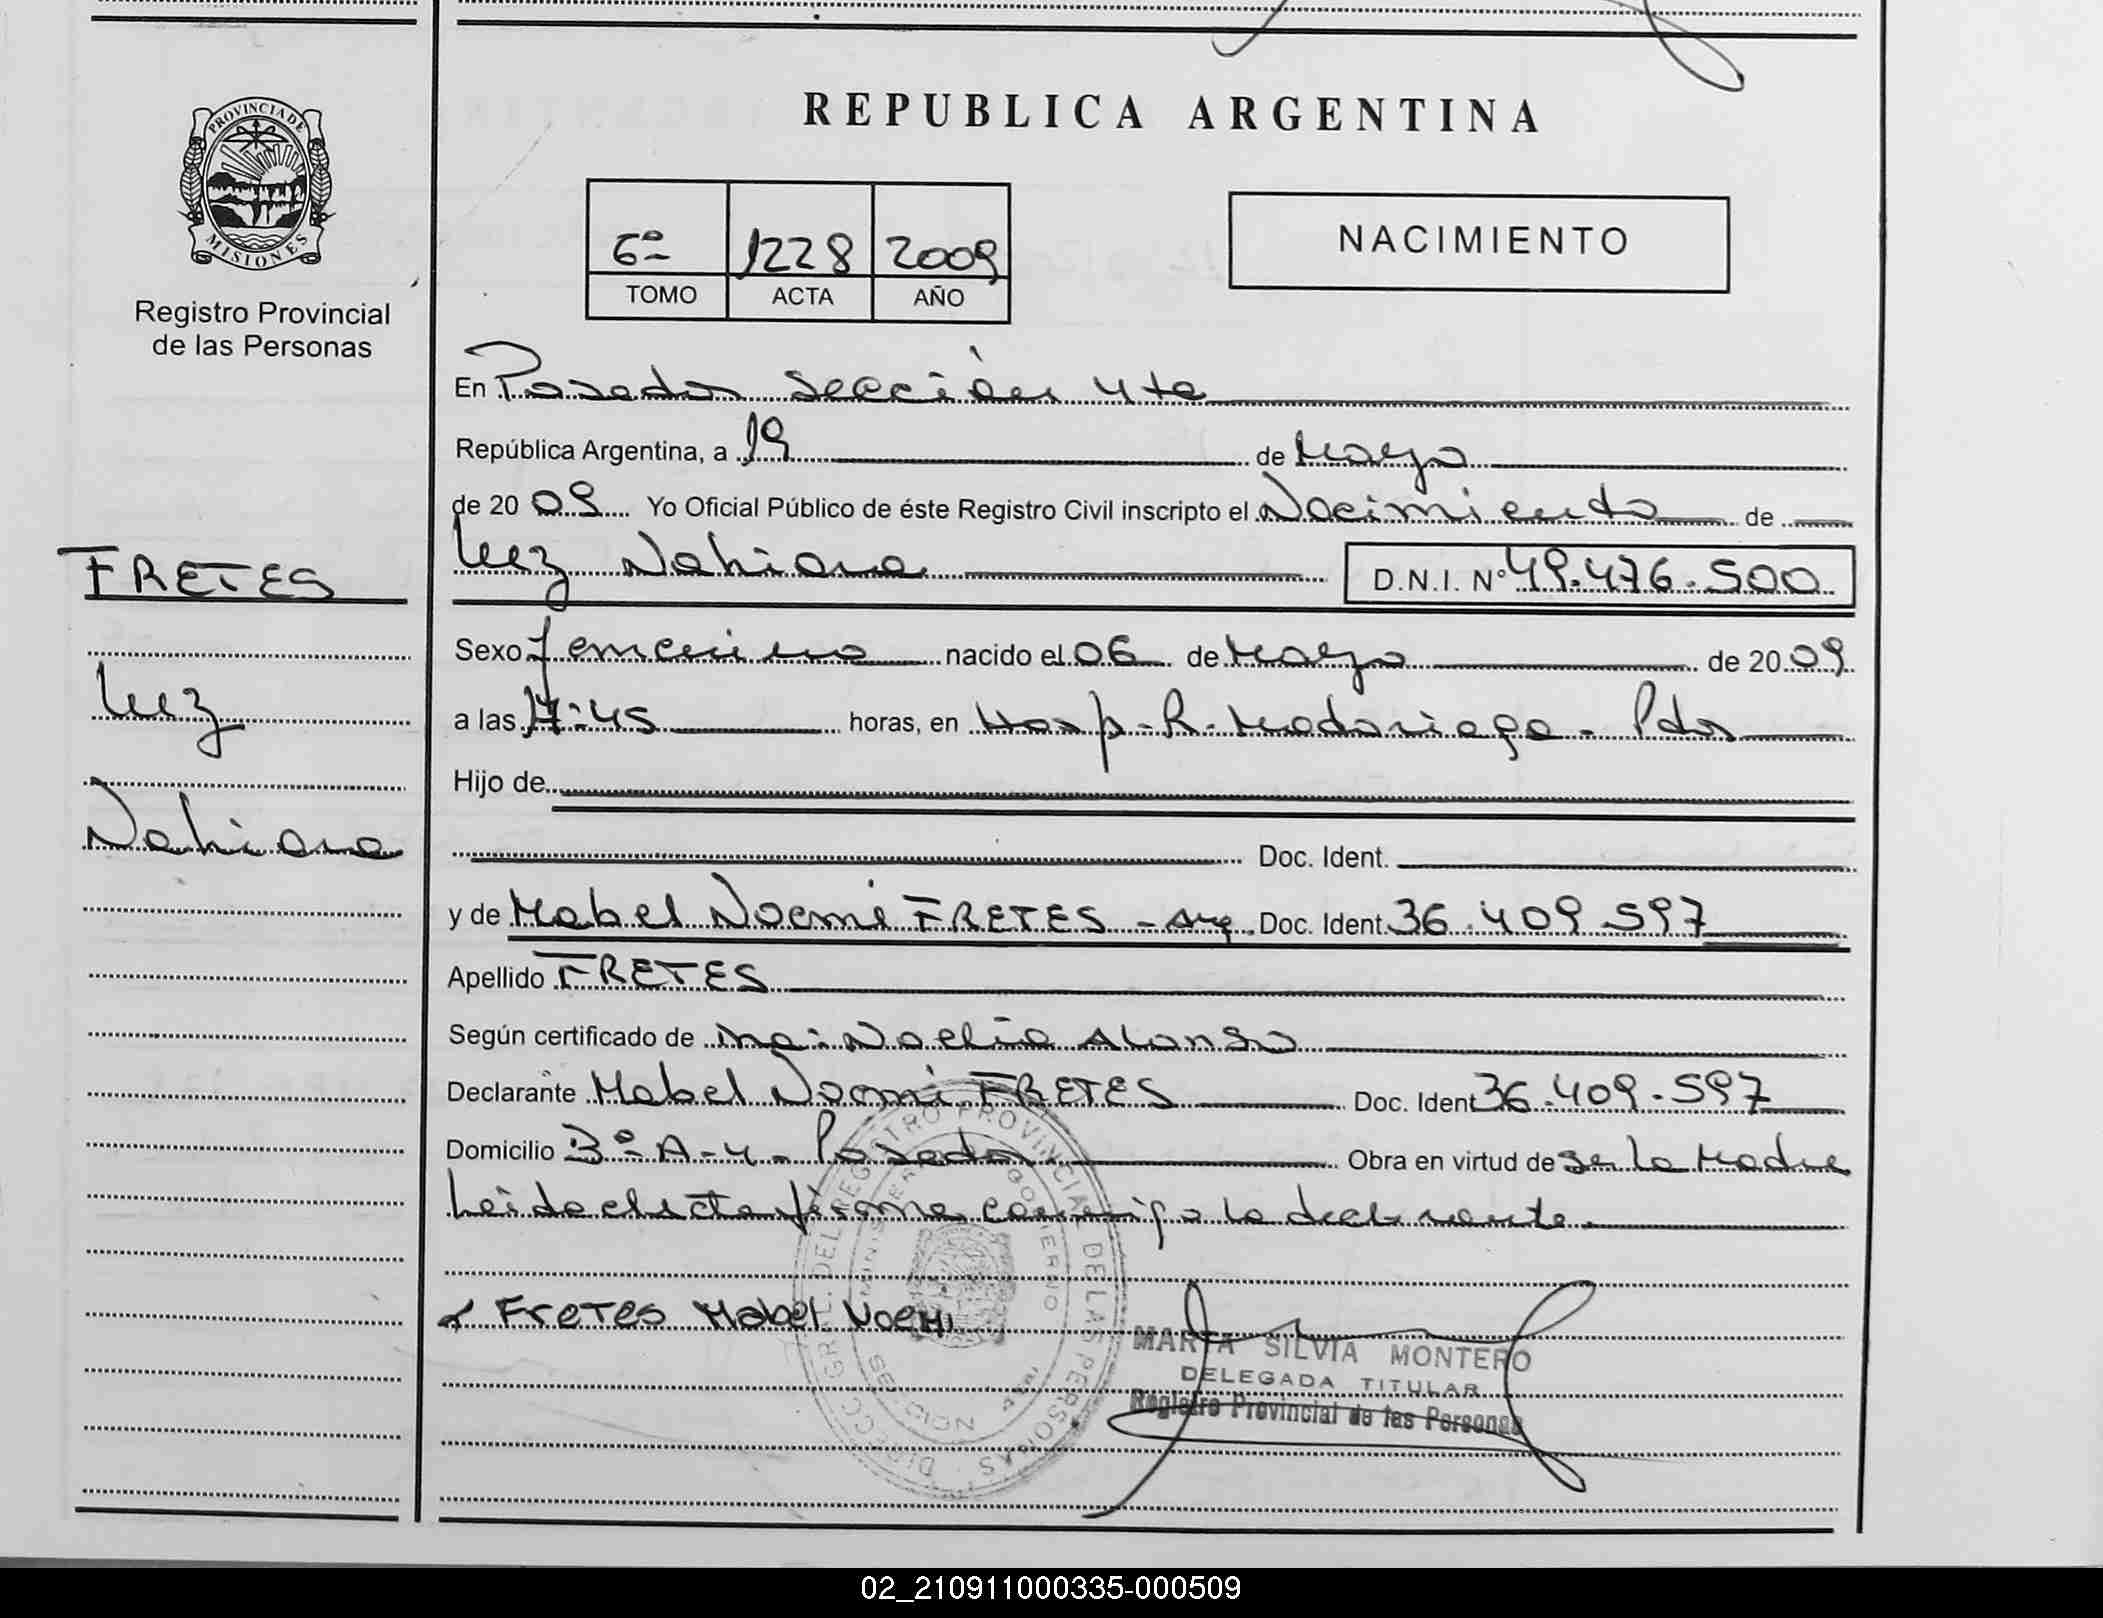 REPUBLICA ARGENTINA
PROVINCIA DE MISIONES
Registro Provincial
de las Personas
6º 1228 2009
TOMO ACTA AÑO
NACIMIENTO
En Posadas Sección 4ta
República Argentina, a 19 de Mayo
de 2009 Yo Oficial Público de éste Registro Civil inscripto el Nacimiento de
Luz Nahiara D.N.I. Nº 49.476.500
FRETES
Luz
Nahiara
Sexo femenino nacido el 06 de Mayo de 2009
a las 17:45 horas, en Hosp. R. Madariaga - Pdas
Hijo de
Doc. Ident.
y de Mabel Noemi FRETES - Arg. Doc. Ident. 36.409.597
Apellido FRETES
Según certificado de Noelia Alonso
Declarante Mabel Noemi FRETES Doc. Ident 36.409.597
Domicilio Bº A-4 - Posadas Obra en virtud de ser la Madre
Leida el acta firma conmigo la declarante.
Fretes Mabel Noemi
DIRECC. GRAL. DEL REGISTRO PROVINCIAL DE LAS PERSONAS
MARTA SILVIA MONTERO
DELEGADA TITULAR
Registro Provincial de las Personas
02_210911000335-000509